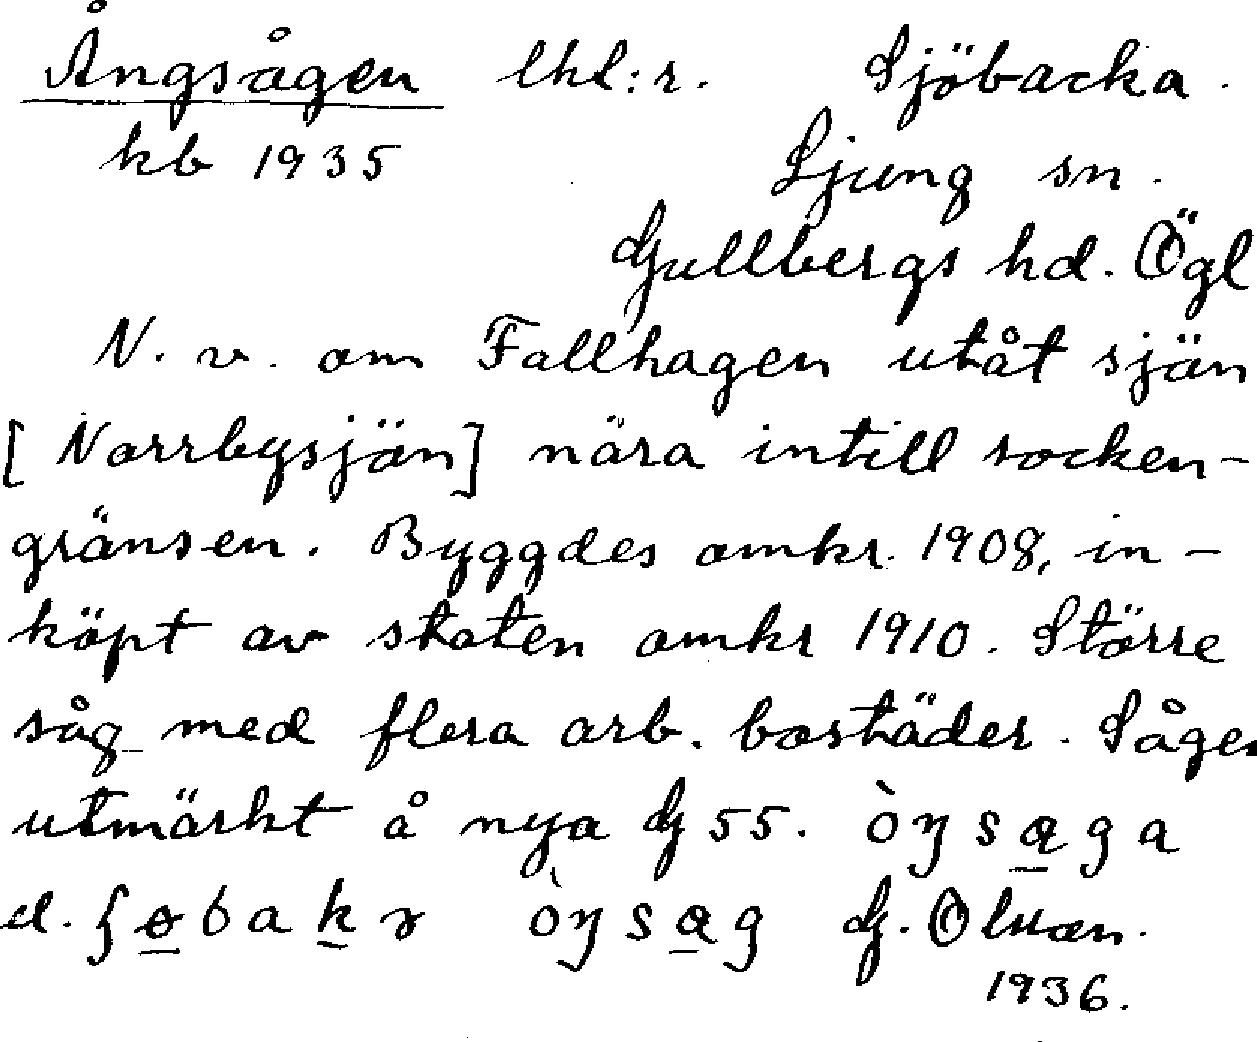 Ångsågen lhl:r. Sjöbacka.
kb 1935 Ljung sn.
Gullbergs hd. Ögl
N. v. om Fallhagen utåt sjön
[Norrbysjön] nära intill socken-
gränsen. Byggdes omkr. 1908, in-
köpt av staten omkr 1910. Större
såg med flera arb. bostäder. Sågen
utmärkt å nya G 55.
el. G. Olson.
1936.